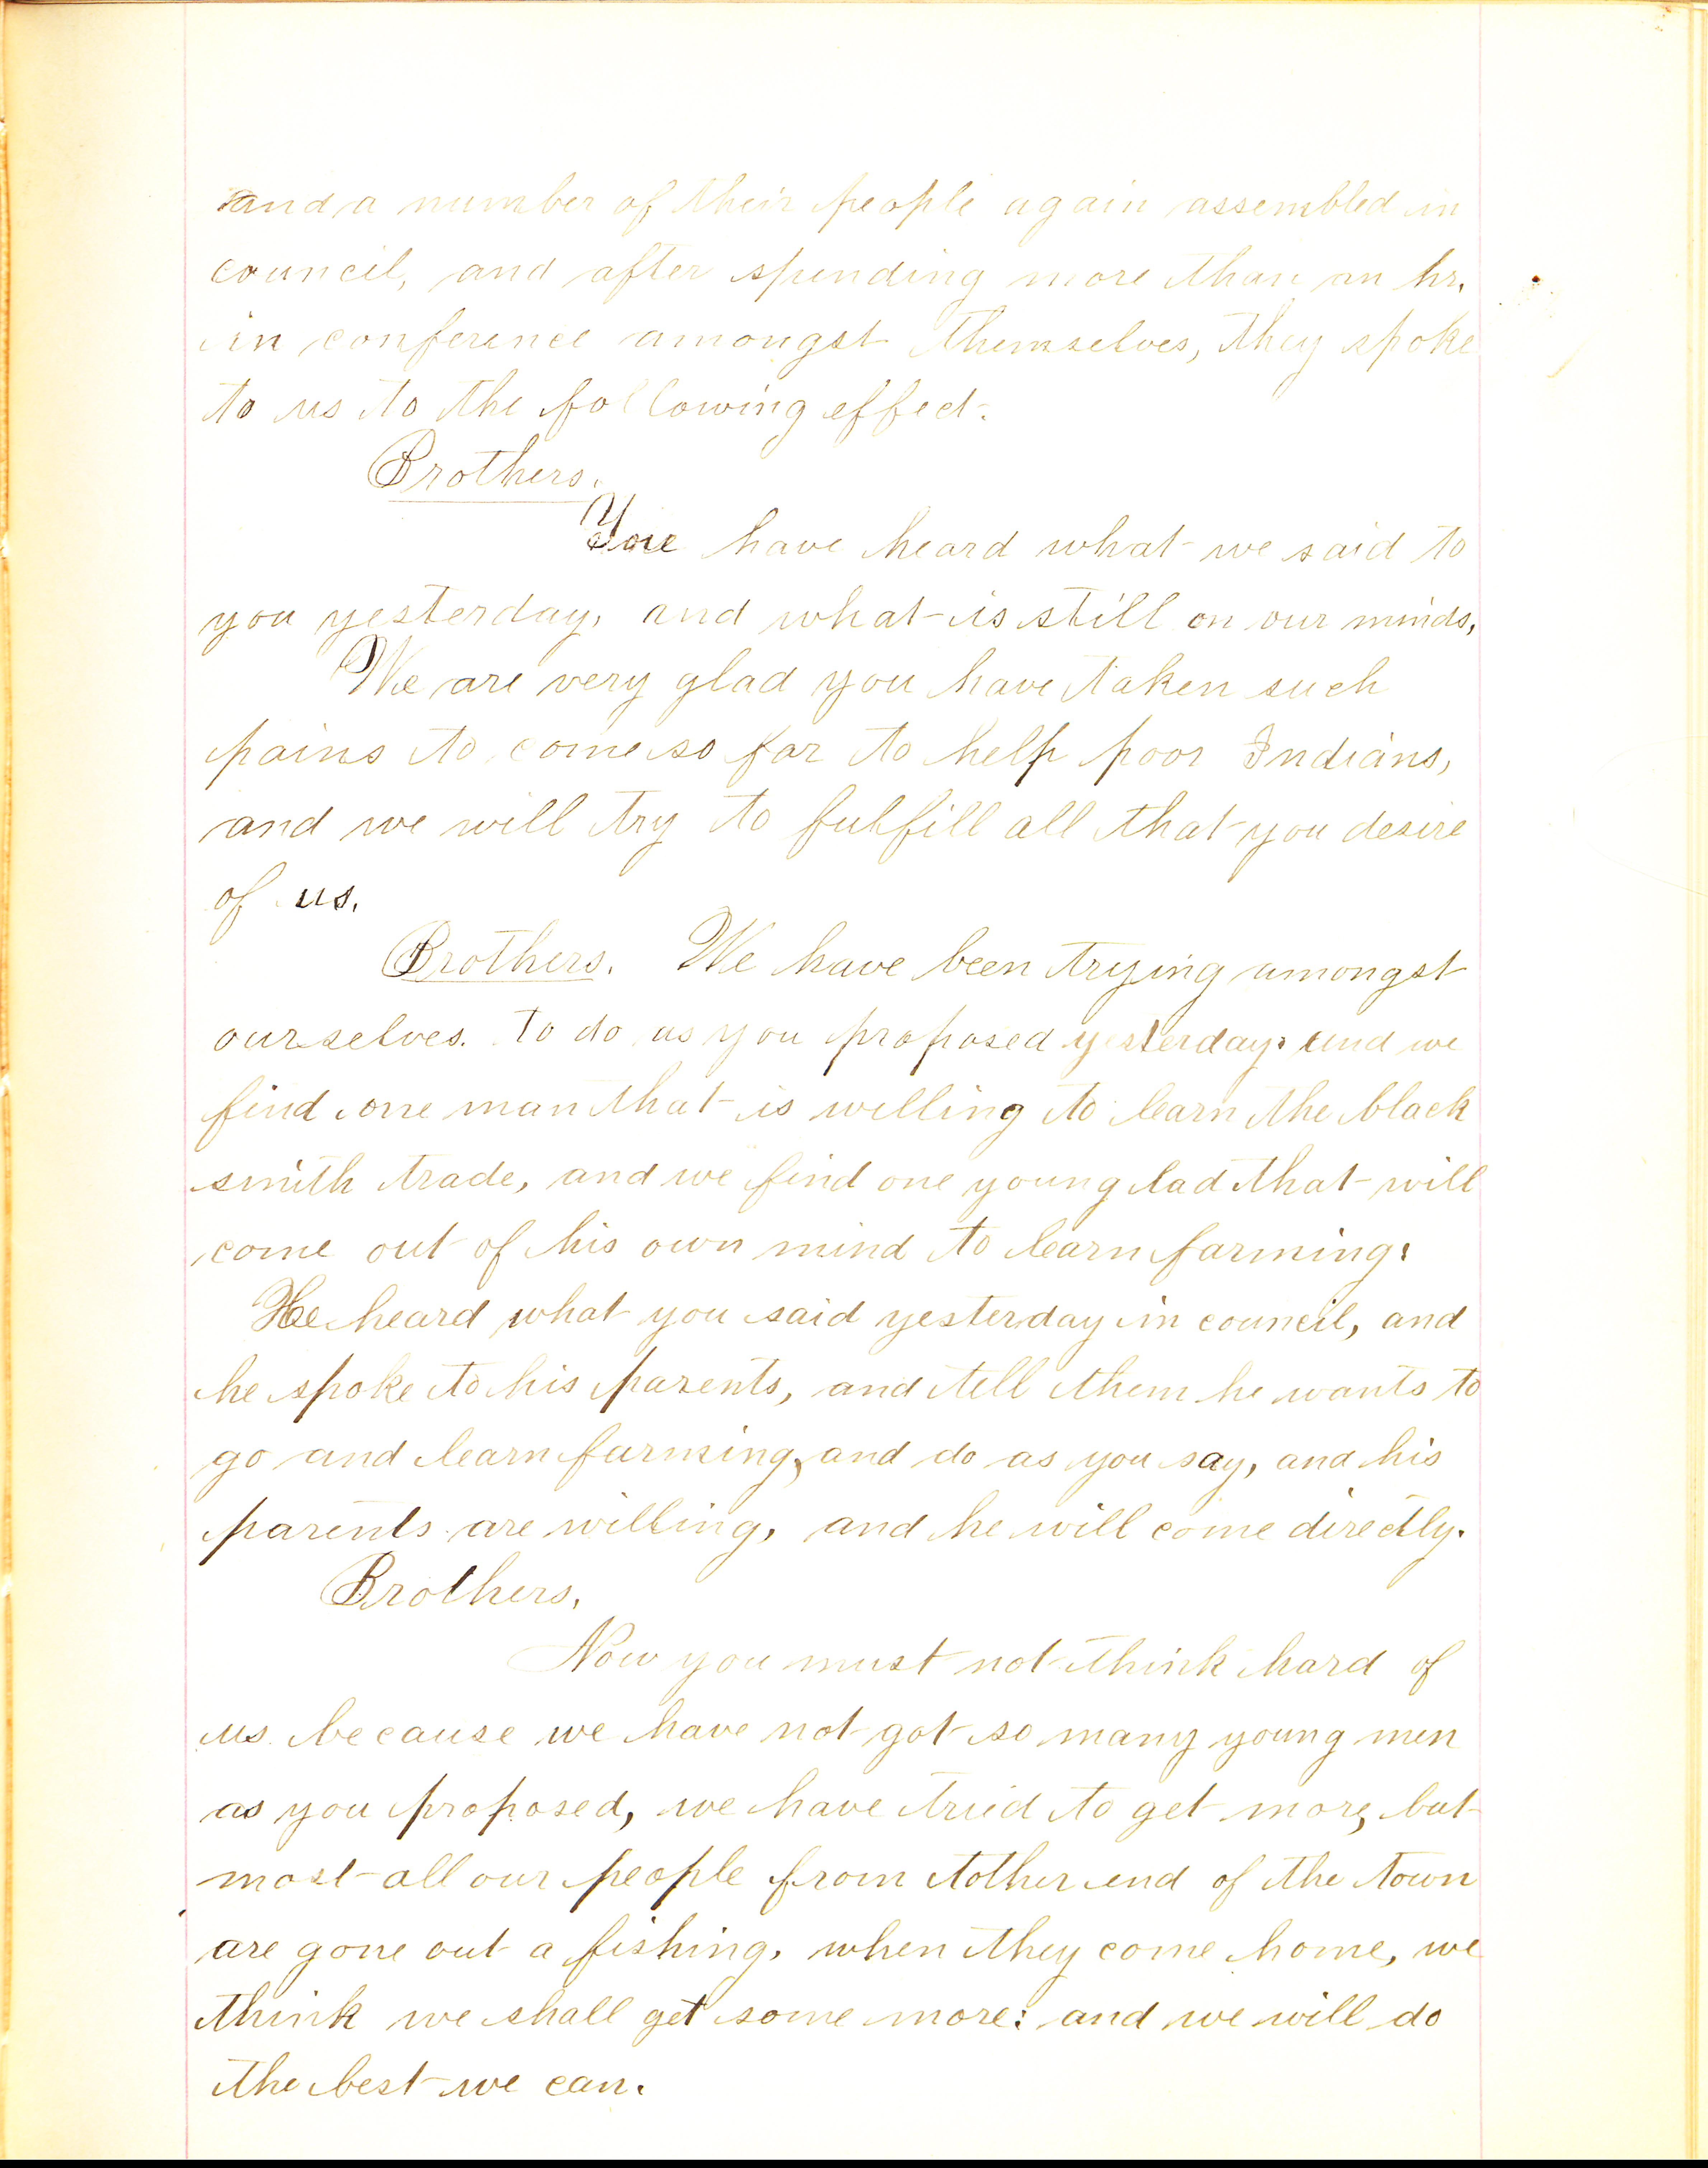 and a number of their people again assembled in
council, and after spending more than an hr.
in conference amongst themselves, they spoke
to us to the following effect.
Brothers.
You have heard what we said to
you yesterday, and what is still on our minds,
We are very glad you have taken such
pains to come so far to help poor Indians,
and we will try to fulfill all that you desire
of us.
Brothers. We have been trying amongst
ourselves. to do as you proposed yesterday: and we
find one man that is willing to learn the black
smith trade, and we find one young lad that will
come out of his own mind to learn farming:
He heard what you said yesterday in council, and
he spoke to his parents, and tell them he wants to
go and learn farming, and do as you say, and his
parents are willing, and he will come directly.
Brothers,
Now you must not think hard of
us because we have not got so many young men
as you proposed, we have tried to get more, but
most all our people from tother end of the town
are gone out a fishing, when they come home, we
think we shall get some more: and we will do
the best we can.